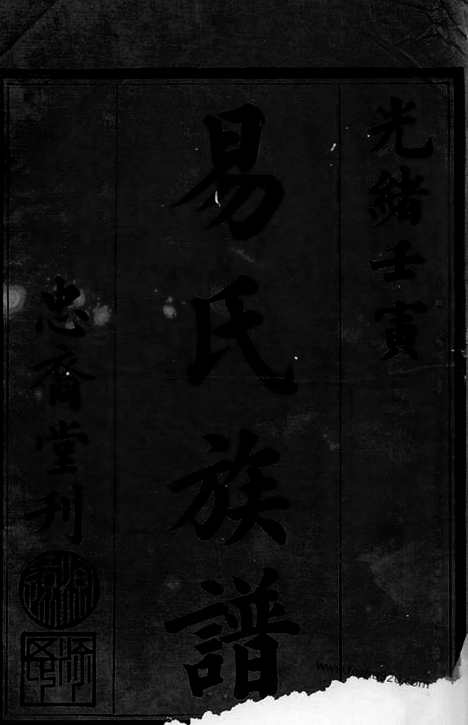 光緒壬寅
易氏族譜
忠齋堂刊